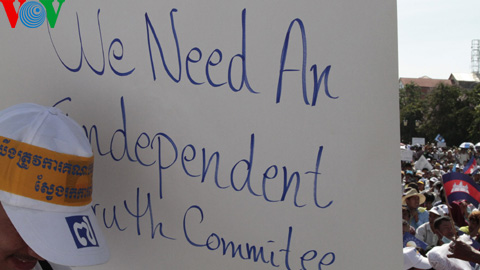 VOV
We Need An
Independent
Truth Commitee